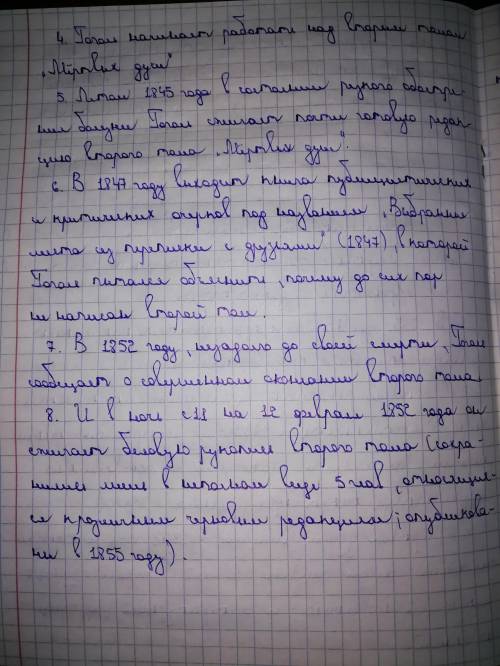 4. Гоголь начинает работать над вторым томом
„Мёртвих душ"
5. Летом 1845 года в состоянии резкого обостре-
ния болезни Гоголь сжигает почти готовую редак-
цию второго тома „Мёртвих душ".
6. В 1847 году виходит книга публицистических
и критических очерков под названием „Вибранные
места из переписки с друзьями" (1847), в которой
Гоголь питался объяснить, почему до сих пор
не написан второй том.
7. В 1852 году, незадолго до своей смерти, Гоголь
сообщает о совершенном окончании второго тома.
8. И в ночь с 11 на 12 февраля 1852 года он
сжигает беловую рукопись второго тома (сохра-
нились лишь в неполном виде 5 глав, относящие-
ся к различным черновим редакциям; опубликова-
ни в 1855 году).